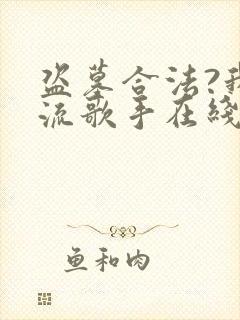 盗墓合法?我
流歌手在线
鱼和肉